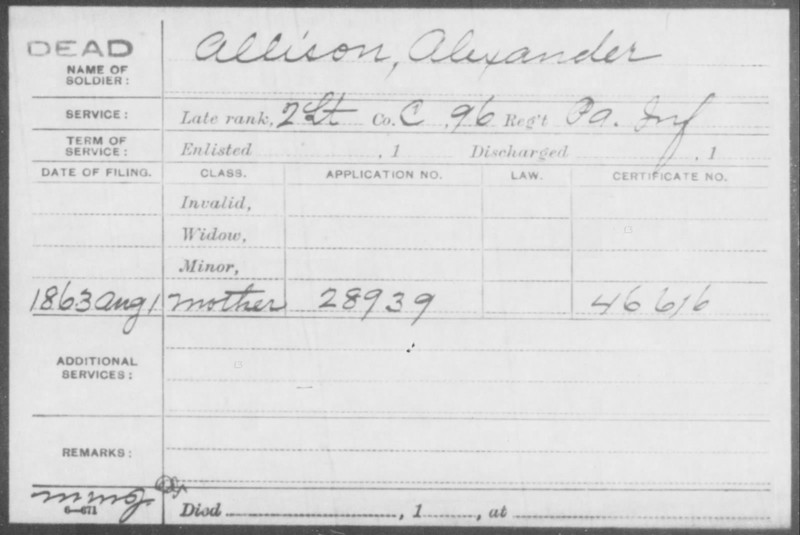 DEAD
NAME OF SOLDIER: Allison, Alexander
SERVICE: Late rank, 2 Lt Co. C, 96 Reg't Pa. Inf
TERM OF SERVICE: Enlisted , 1 Discharged , 1
DATE OF FILING. CLASS. APPLICATION NO. LAW. CERTIFICATE NO.
Invalid,
Widow,
Minor,
1863 Aug 1 Mother 28939 46616
ADDITIONAL SERVICES:
REMARKS:
6—671
Died , 1 , at